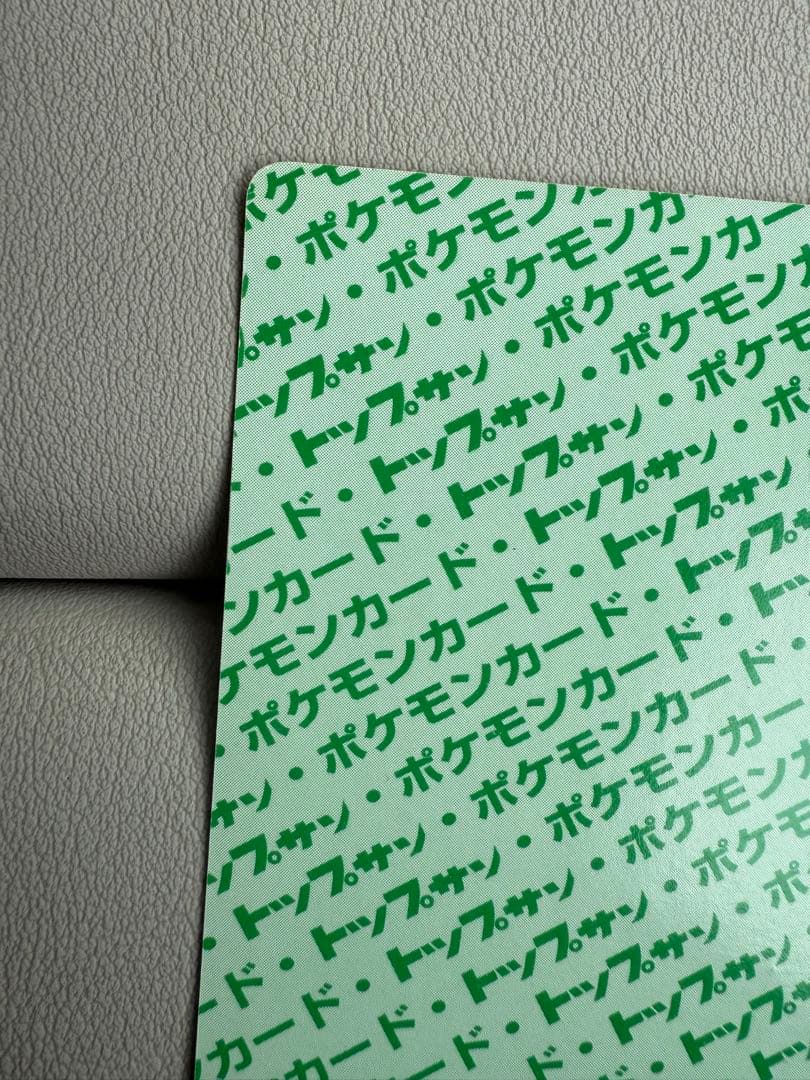 ケモ
・ポケモ
サン・ポケモン
ップサン・ポケモンカ
・トップサン・ポケモンカー
ード・トップサン・ポケモンカ
ンカード・トップサン・ポケモ
ケモンカード・トップサン・ポ
・ポケモンカード・トップサン
サン・ポケモンカード・トップ
ップサン・ポケモンカード・ト
・トップサン・ポケモンカード・
ード・トップサン・ポケモンカー
カード・トップサン・ポケモンカ
カード・トップサン・ポケモ
ド・トップサン・ポ
ド・トップサン
・トップ